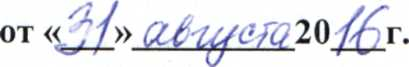 от «31» августа 2016 г.